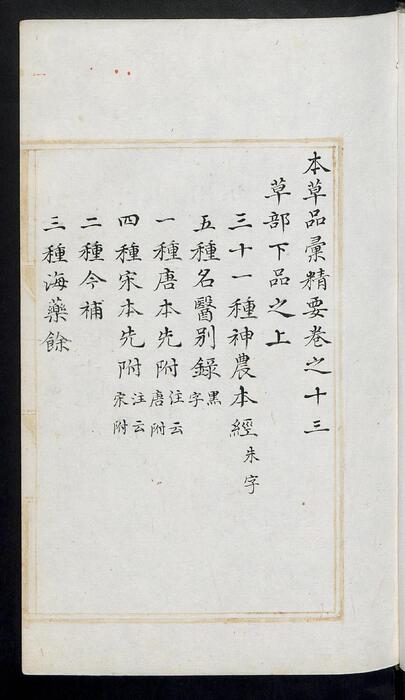 本草品彙精要卷之十三
草部下品之上
三十一種神農本經朱字
五種名醫别錄黑字
一種唐本先附注云唐附
四種宋本先附注云宋附
二種今補
三種海藥餘